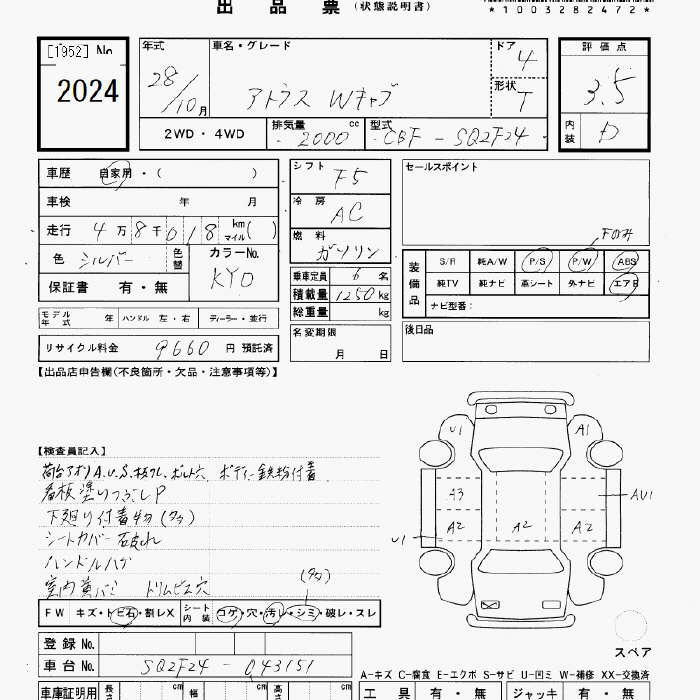 出品票(状態説明書)
*1003282472*
[1952] No
2024
年式 28/10月
車名・グレード アトラス Wキャブ
ドア 4
形状 T
評価点 3.5
内装 D
2WD・4WD
排気量 2000 cc
型式 CBF - SQ2F24
車歴 自家用・( )
車検 年 月
走行 4万8千018 km マイル( )
色 シルバー 色替
カラーNo. KY0
保証書 有・無
シフト F5
冷房 AC
燃料 ガソリン
乗車定員 6名
積載量 1250 kg
総重量 kg
セールスポイント
Fのみ
装備品
S/R 純A/W P/S P/W ABS
純TV 純ナビ 革シート 外ナビ エアB
ナビ型番:
モデル年式 年 ハンドル 左・右 ディーラー・並行
名変期限 月 日
後日品
リサイクル料金 9660 円 預託済
【出品店申告欄(不良箇所・欠品・注意事項等)】
【検査員記入】
荷台アオリA.U.S.板ワレ、ボルト穴、ボディー鉄粉付着
看板塗りつぶしP
下廻り付着物(多)
シートカバー 破れ
ハンドルハゲ
室内 ドリムビス穴
(多)
FW キズ・トビ石・割レX
シート内装 コゲ・穴・汚レ・シミ・破レ・スレ
U1 A1
A3 AU1
A2 A2 A2
U1
スペア
登録No.
車台No. SQ2F24 - 043151
A-キズ C-腐食 E-エクボ S-サビ U-凹ミ W-補修 XX-交換済
車庫証明用 長さ cm 幅 cm 高さ cm
工具 有・無 ジャッキ 有・無